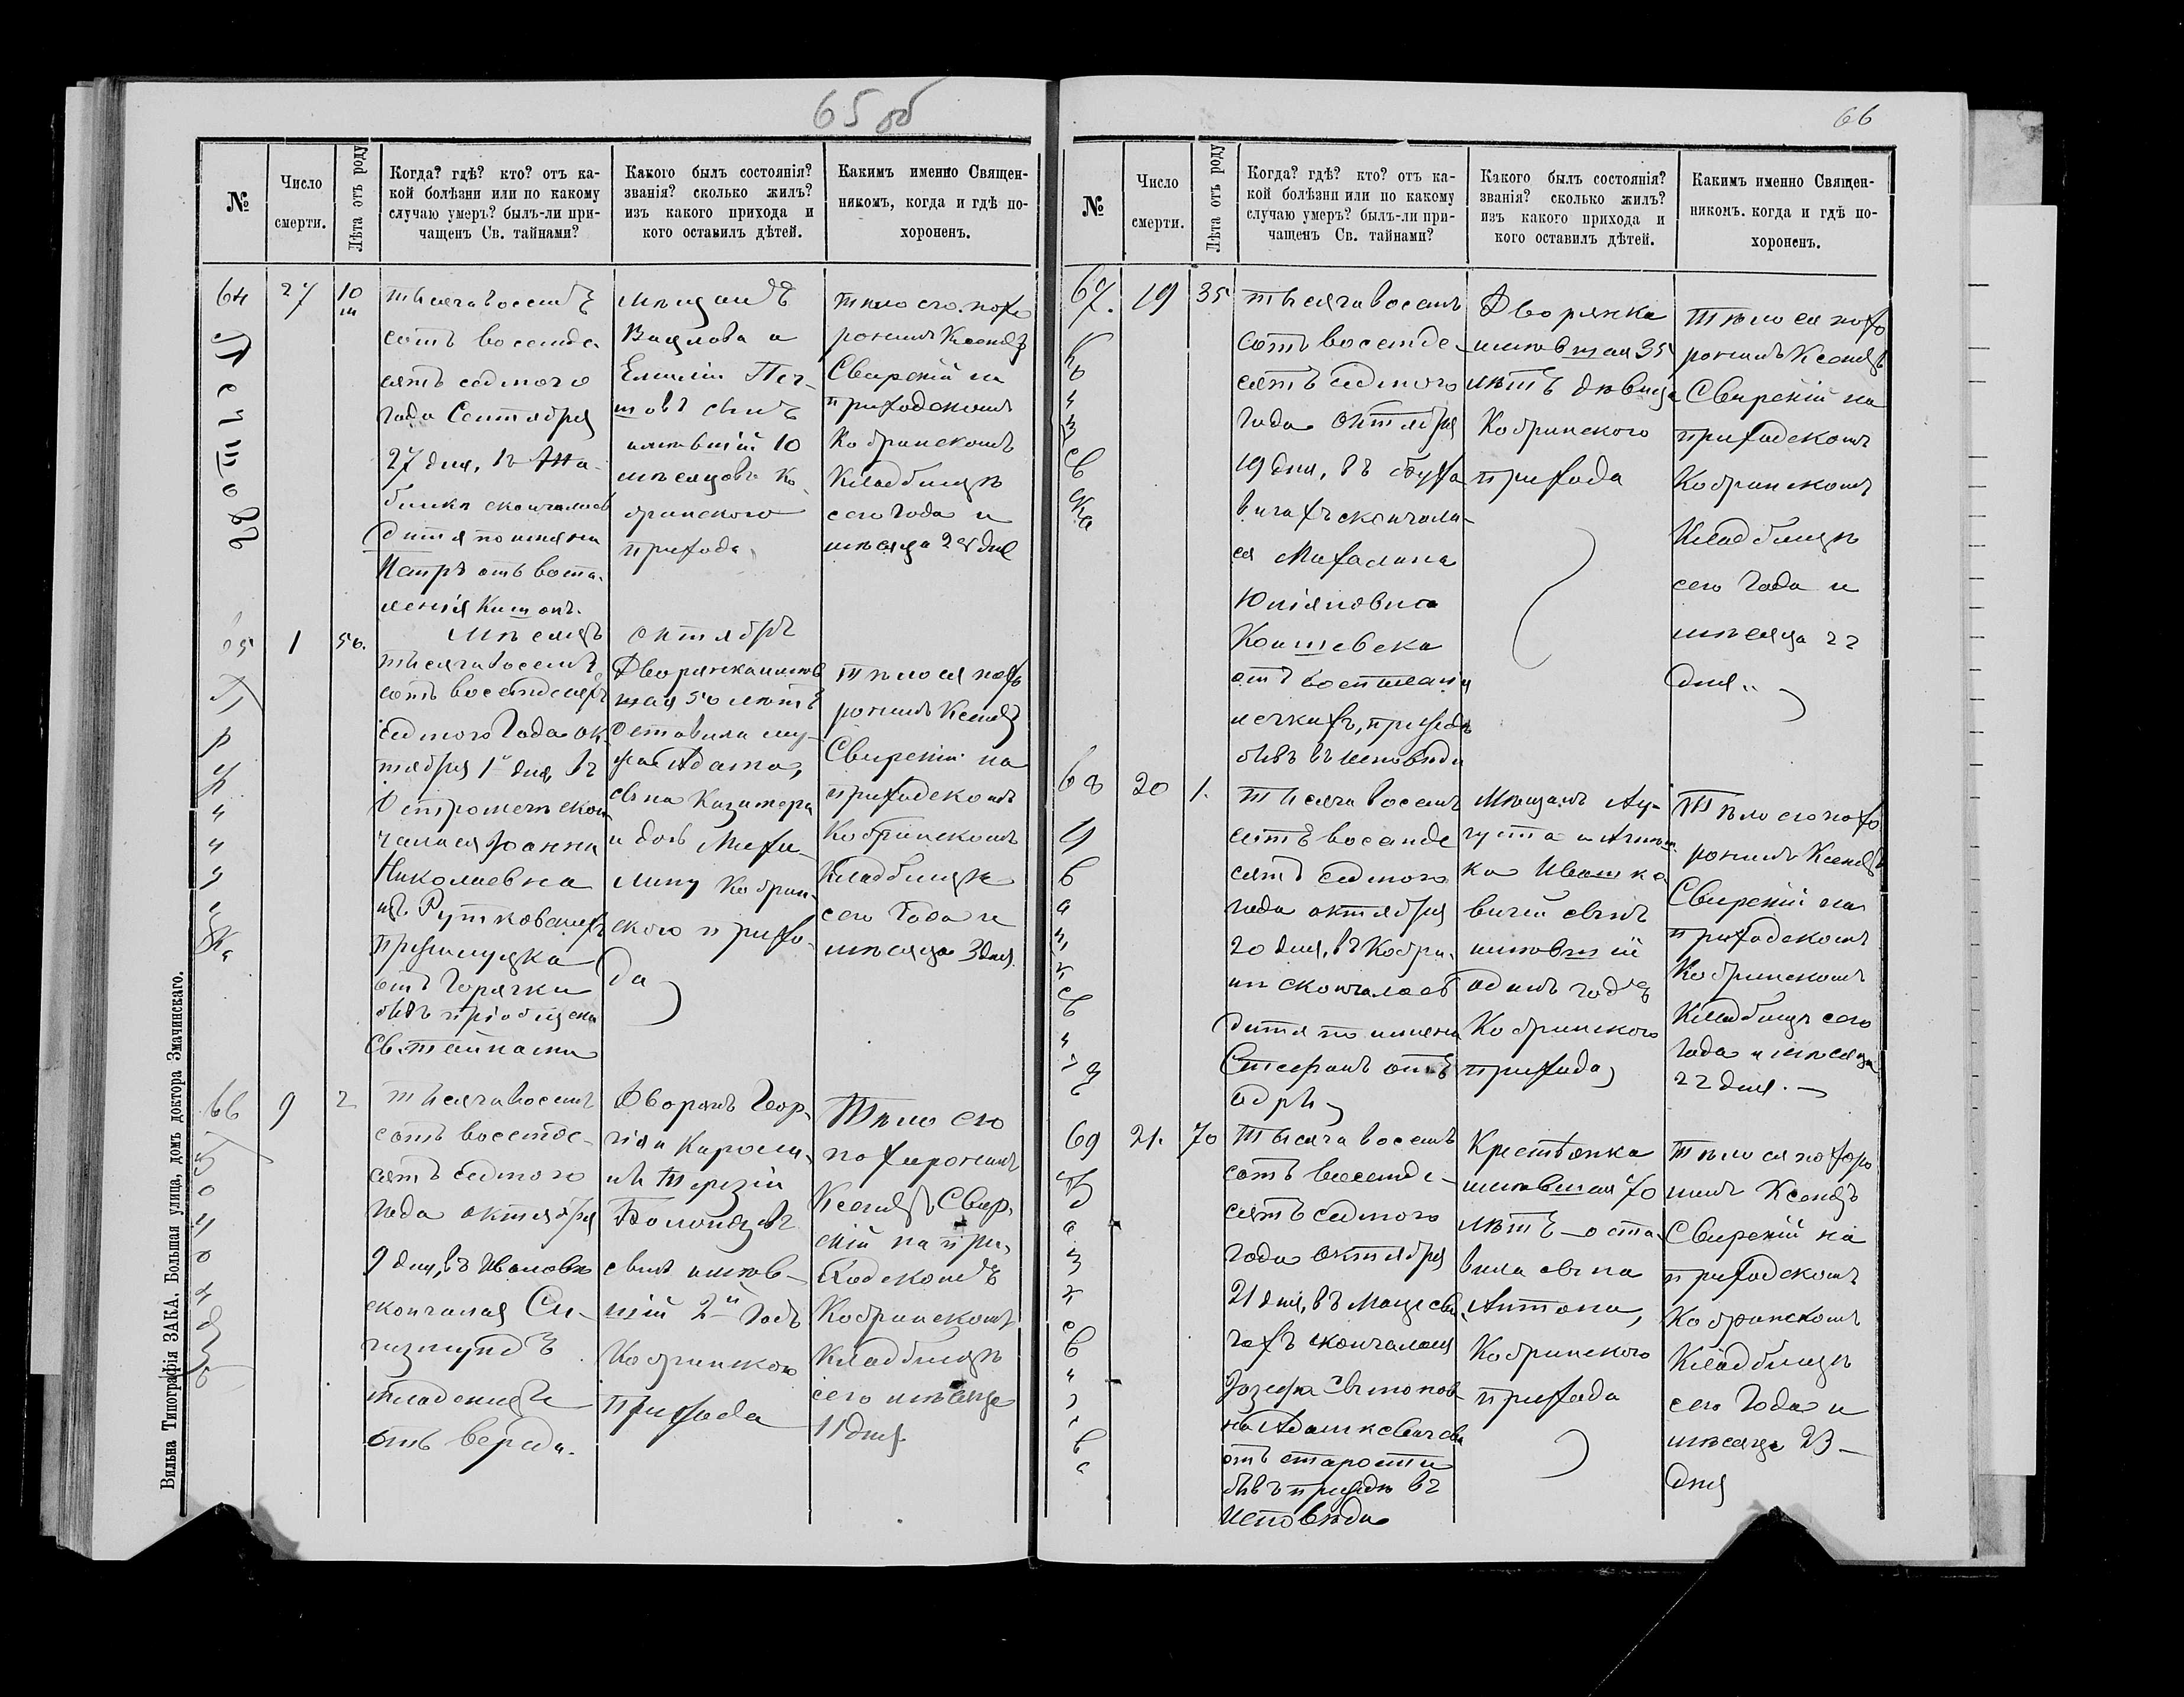 65 об
№
Число
смерти.
Лѣта отъ роду
Когда? гдѣ? кто? отъ ка-
кой болѣзни или по какому
случаю умеръ? былъ-ли при-
чащенъ Св. тайнами?
Какого былъ состоянія?
званія? сколько жилъ?
изъ какого прихода и
кого оставилъ дѣтей.
Какимъ именно Священ-
никомъ, когда и гдѣ по-
хороненъ.
64
27
10
м
тысяча восемъ
сотъ восемьде-
сятъ седмого
года Сентября
27 дня, въ
скончалось
дитя по имени
Петръ отъ воспа-
ленія Кишокъ.
мѣщанъ
Вацлава и
Емиліи Пет-
шовъ сынъ
имѣвшій 10
мѣсяцовъ Ко-
бринского
прихода
тѣло его похо
ронилъ Ксендзъ
Свирскій на
приходскомъ
Кобринскомъ
Кладбищѣ
сего года и
мѣсяца 28 дня
Мѣсяцъ октябръ
65
1
50.
тысяча восемъ
сотъ восемдесятъ
седмого Года ок-
тября 1го дня, въ
Остромечи скон
чалася Іоанна
Николаевна
изъ Рутковскихъ
отъ Горячки
бывъ пріобщена
Св. тайнами
Дворянка имѣв
шая 50 лѣтъ
Оставила му-
жа Адама,
сына Казимера
и дочь Миха-
лину Кобрин-
ского прихо-
да
Тѣло ея похо
ронилъ Ксендзъ
Свирскій на
приходскомъ
Кобринскомъ
Кладбищѣ
сего Года и
мѣсяца 3 дня.
66
9
2
тысяча восемъ
сотъ восемде-
сятъ седмого
года октября
9 дня, въ Ивановѣ
скончался Си-
гизмундъ
младенецъ
отъ вереди.
Дворянъ Геор-
гія и Кароли-
ны Терезіи
сынъ имѣв-
шій 2й годъ
Кобринского
Прихода
Тѣло его
похоронилъ
Ксендзъ Свир-
скій на при-
ходскомъ
Кобринскомъ
Кладбищѣ
сего мѣсяца
11 дня
Вильна Типографія ЗАКА, Большая улица, домъ доктора Змачинскаго.
66
№
Число
смерти.
Лѣта отъ роду
Когда? гдѣ? кто? отъ ка-
кой болѣзни или по какому
случаю умеръ? былъ-ли при-
чащенъ Св. тайнами?
Какого былъ состоянія?
званія? сколько жилъ?
изъ какого прихода и
кого оставилъ дѣтей.
Какимъ именно Священ-
никомъ. когда и гдѣ по-
хороненъ.
67.
19
35
тысяча восемъ
сотъ восемде-
сятъ седмого
года октября
19 дня, въ Буха
вичахъ скончала-
ся Михалина
отъ воспаленія
легкихъ, прежде
бывъ въ исповѣди
Дворянка
имѣвшая 35
лѣтъ дѣвица
Кобринского
прихода
Тѣло ея похо
ронилъ Ксендзъ
Свирскій на
приходскомъ
Кобринскомъ
Кладбищѣ
сего Года и
мѣсяца 22
дня
68
20
1.
Тысяча восемъ
сотъ восемде
сятъ седмого
года октября
20 дня, въ Кобри-
нѣ скончалось
дитя по имени
Стефанъ отъ
одры
Мѣщанъ Ав-
густа и
Ивашке
вичей сынъ
имѣвшій
одинъ годъ
Кобринского
прихода
Тѣло его похо
ронилъ Ксендзъ
Свирскій на
приходскомъ
Кобринскомъ
Кладбищѣ сего
года и мѣсяца
22 дня. —
69
21.
70
Тысяча восемъ
сотъ восемде-
сятъ седмого
года октября
21 дня, въ Мацеви
чахъ скончалася
Іозефа Сымонов
на Адамкевичева
отъ старости
бывъ прежде въ
исповѣди
Крестьянка
имѣвшая 70
лѣтъ — оста-
вила сына
Антона,
Кобринского
прихода
Тѣло ея похоро
нилъ Ксендзъ
Свирскій на
приходскомъ
Кобринскомъ
Кладбищѣ
сего Года и
мѣсяца 23 —
дня